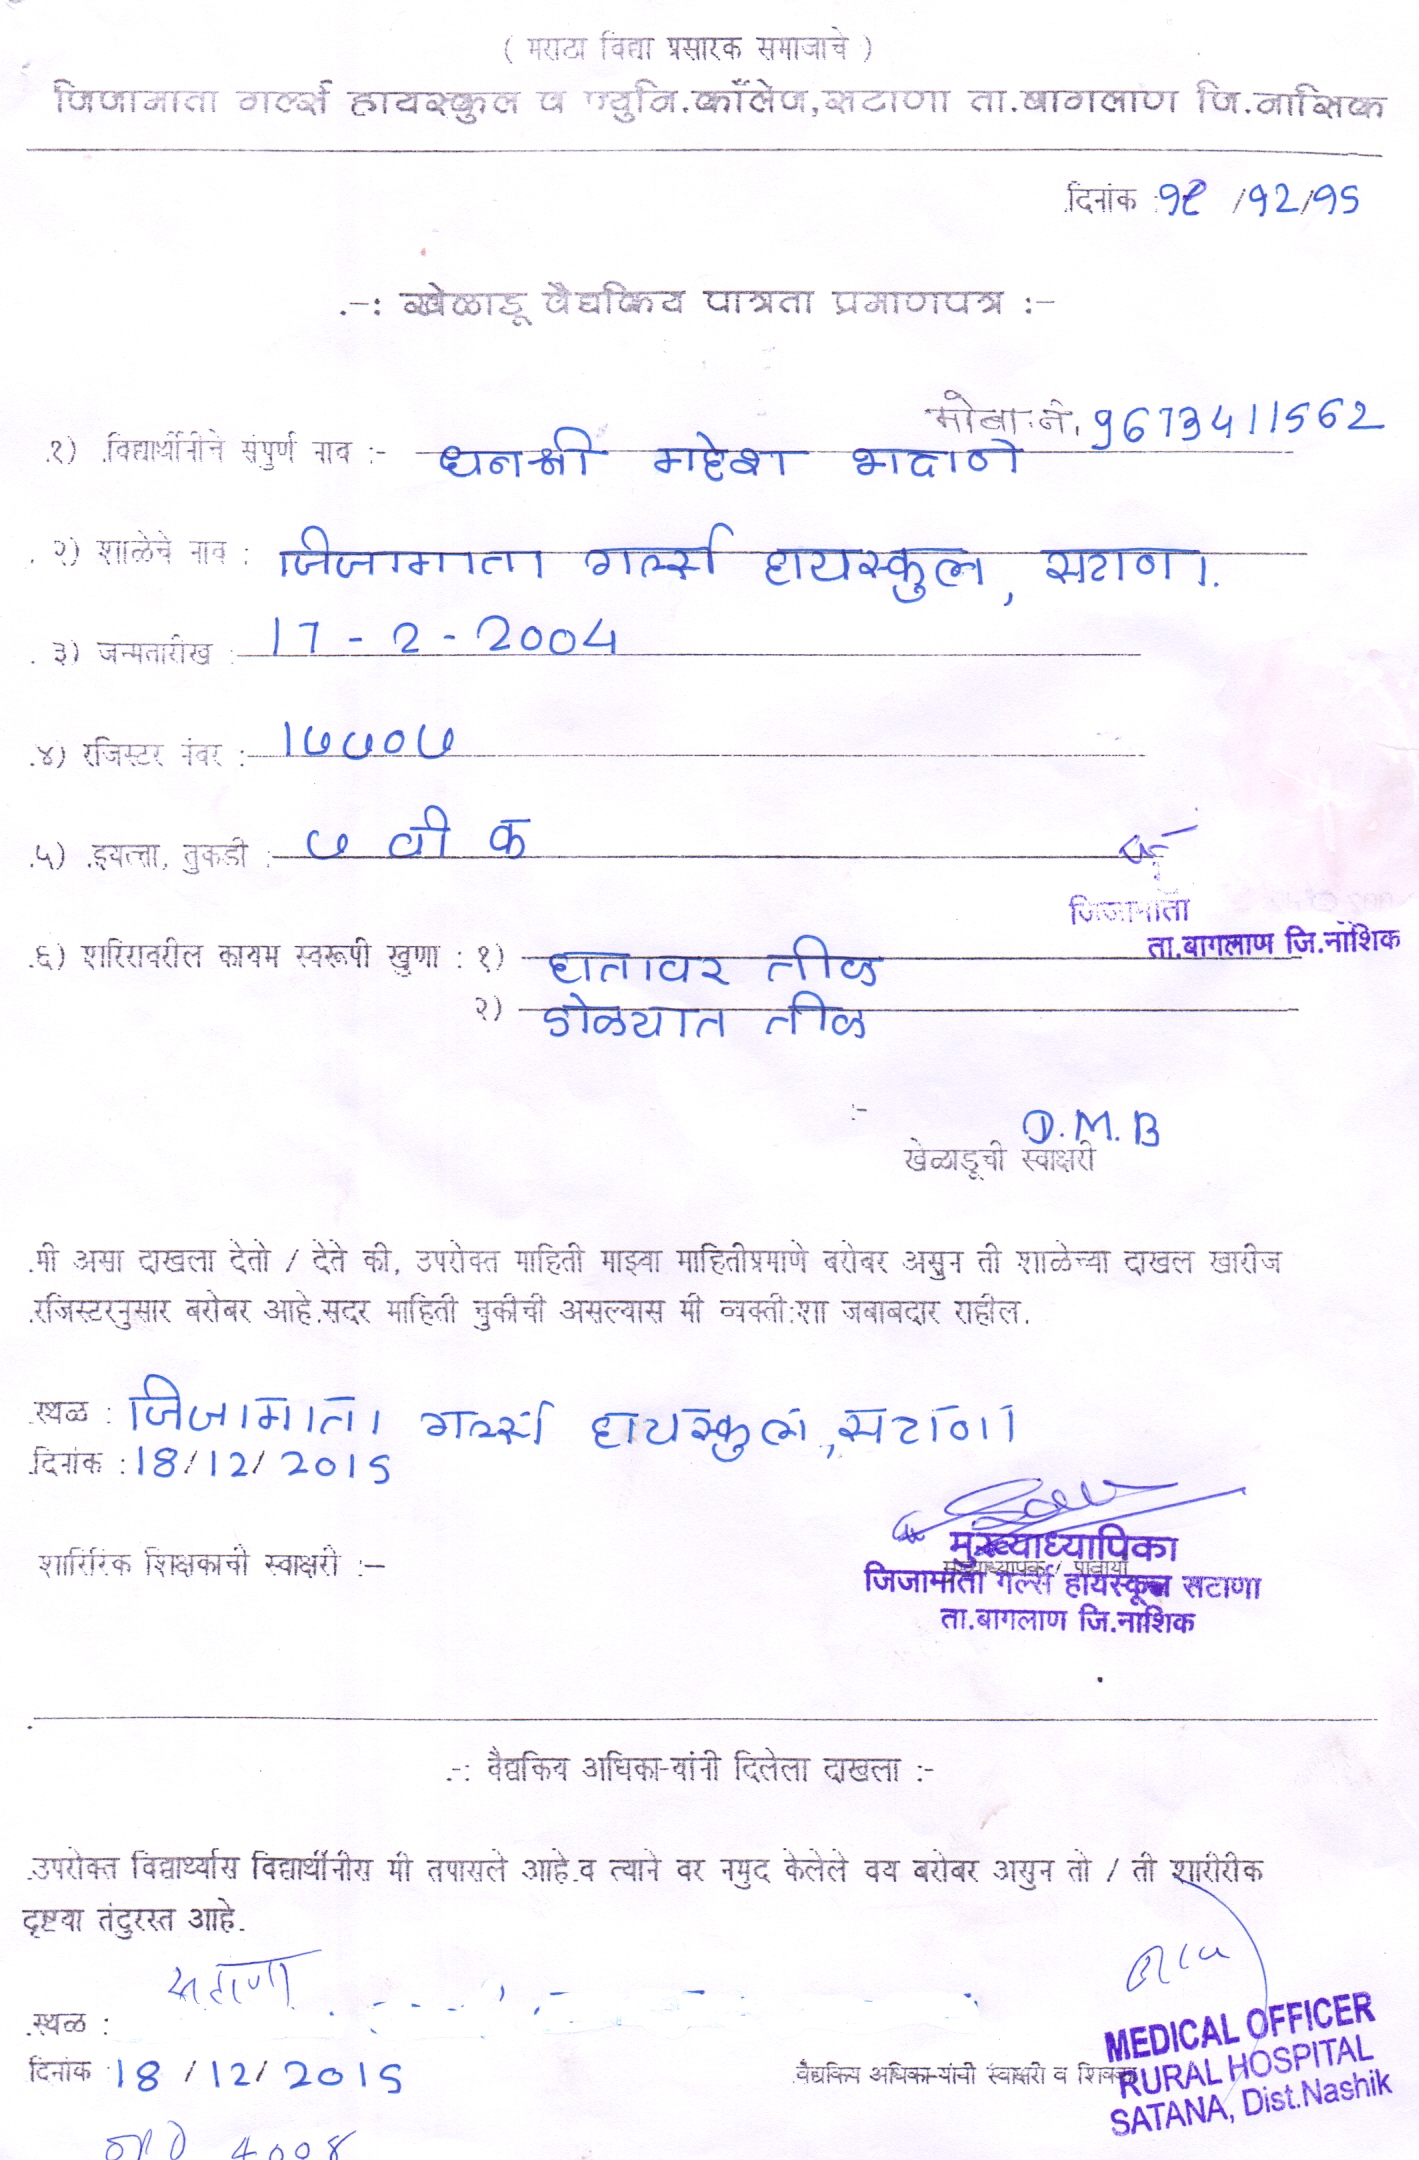 ( मराठा विद्या प्रसारक समाजाचे )
जिजामाता गर्ल्स हायस्कुल व ज्युनि.कॉलेज,सटाणा ता.बागलाण जि.नासिक
दिनांक :१८ /१२/१५
-: खेळाडू वैद्यकिय पात्रता प्रमाणपत्र :-
मोबा.नं. 9673411562
१) विद्यार्थीनीचे संपुर्ण नाव :- धनश्री महेश भदाणे
२) शाळेचे नाव : जिजामाता गर्ल्स हायस्कुल, सटाणा.
३) जन्मतारीख : 17 - 2 - 2004
४) रजिस्टर नंबर : 1७७0७
५) इयत्ता, तुकडी : ७ वी क
जिजामाता
ता.बागलाण जि.नाशिक
६) शरिरावरील कायम स्वरूपी खुणा : १) हातावर तीळ
२) डोळयात तीळ
:-
D.M.B
खेळाडूची स्वाक्षरी
मी असा दाखला देतो / देते की, उपरोक्त माहिती माझ्या माहितीप्रमाणे बरोबर असुन ती शाळेच्या दाखल खारीज
रजिस्टरनुसार बरोबर आहे.सदर माहिती चुकीची असल्यास मी व्यक्ती:शा जबाबदार राहील.
स्थळ : जिजामाता गर्ल्स हायस्कुल ,सटाणा
दिनांक : 18/12/2015
शारिरिक शिक्षकाची स्वाक्षरी :-
मुख्याध्यापिका
जिजामाता गर्ल्स हायस्कूल सटाणा
ता.बागलाण जि.नाशिक
-: वैद्यकिय अधिका-यांनी दिलेला दाखला :-
उपरोक्त विद्यार्थ्यास विद्यार्थीनीस मी तपासले आहे.व त्याने वर नमुद केलेले वय बरोबर असुन तो / ती शारीरीक
दृष्टया तंदुरस्त आहे.
स्थळ : सटाणा
दिनांक 18 /12/ 2015
वैद्यकिय अधिका-यांची स्वाक्षरी व शिक्का
MEDICAL OFFICER
RURAL HOSPITAL
SATANA, Dist.Nashik
OPD 4008